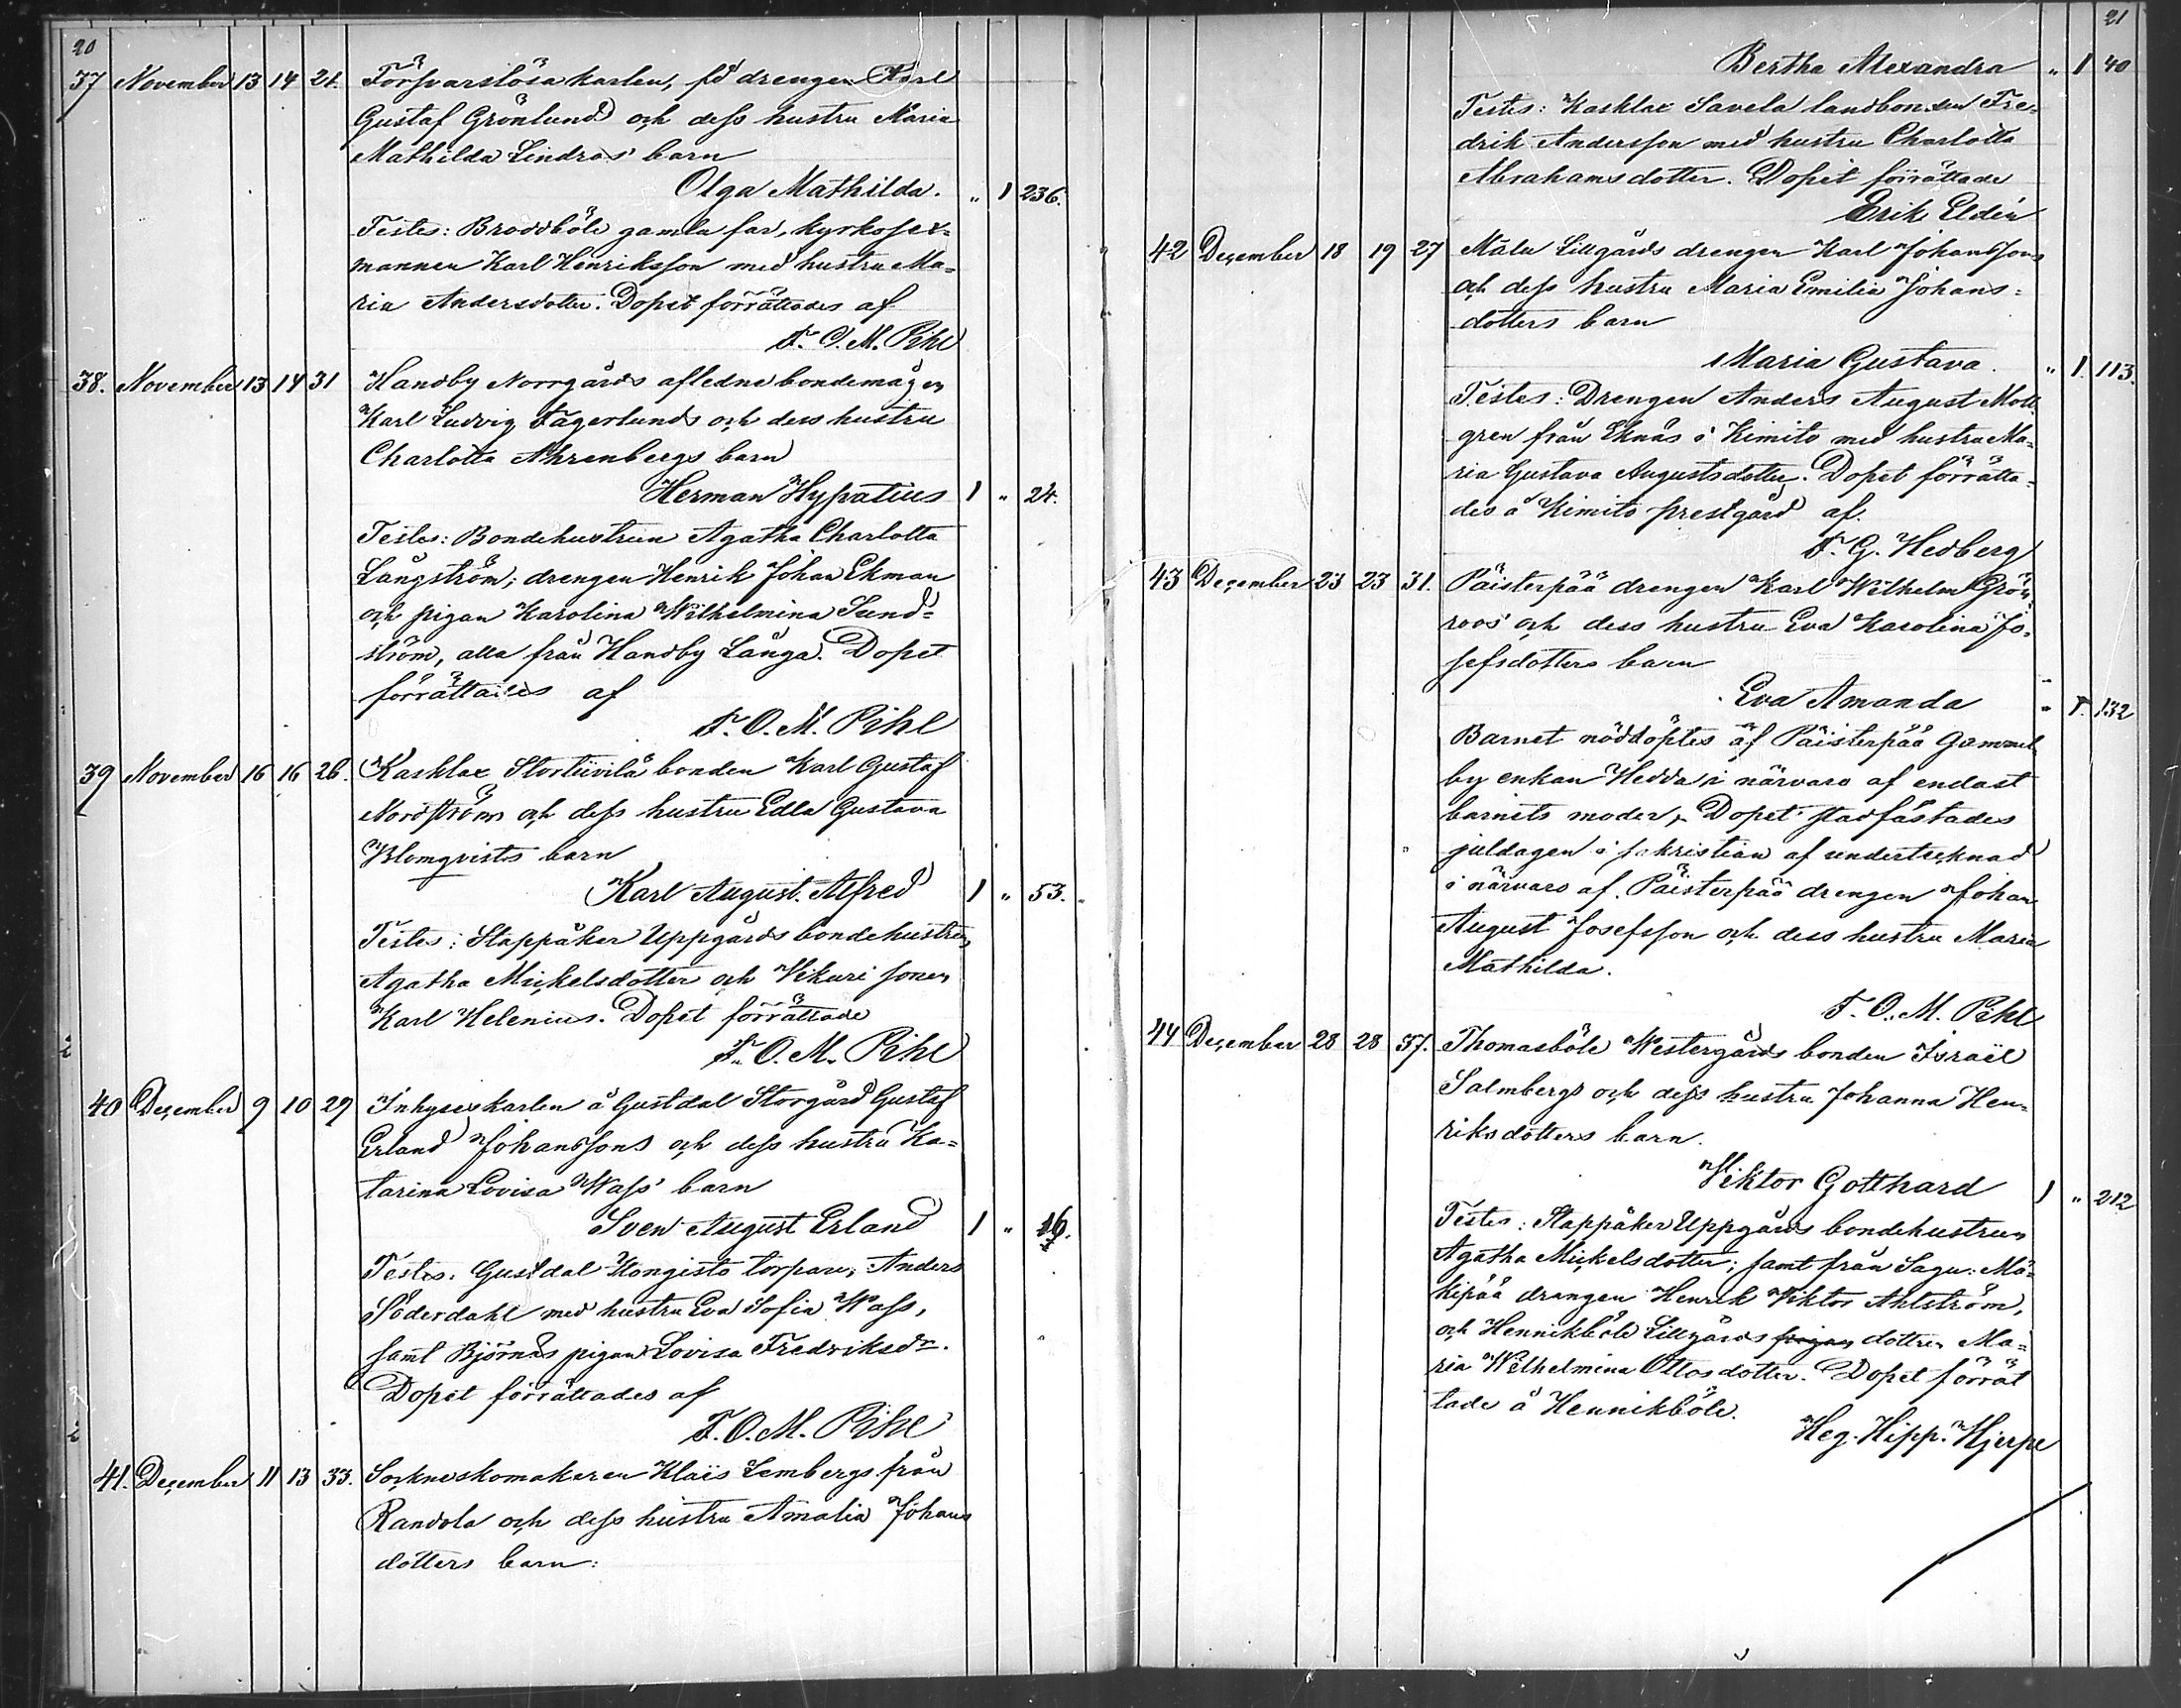 20
37 November 13 14 21. Försvarslösa karlen, fd drengen Karl
Gustaf Grönlunds och dess hustru Maria
Mathilda Lindros' barn
Olga Mathilda. " 1 236.
Testes: Broddböle gamla far, kyrkosex-
mannen Karl Henriksson med hustru Ma-
ria Andersdotter. Dopet förrättades af
F. O. M. Pihl
38. November 13 14 31 Handby Norrgårds afledne bondemågen
Karl Ludvig Fagerlunds och dess hustru
Charlotta Ahrenbergs barn
Herman Hypatius 1 " 24.
Testes: Bondehustrun Agatha Charlotta
Långström; drengen Henrik Johan Ekman
och pigan Karolina Wilhelmina Sund-
ström, alla från Handby Långa. Dopet
förrättades af
F. O. M. Pihl
39 November 16 16 26. Kasklax Stortuvila bonden Karl Gustaf
Nordströms och dess hustru Edla Gustava
Blomqvists barn
Karl August Alfred 1 " 53.
Testes: Stappåker Uppgårds bondehustrun
Agatha Mickelsdotter och Vikari sonen
Karl Helenius. Dopet förrättade
F. O. M. Pihl
40 December 9 10 29 Inhyseskarlen å Gustdal Storgård Gustaf
Erland Johanssons och dess hustru Ka-
tarina Lovisa Wass' barn
Sven August Erland 1 " 16.
Testes: Gustdal Kongisto torparen Anders
Söderdahl med hustru Eva Sofia Wass,
samt Björnäs pigan Lovisa Fredriksdr.
Dopet förrättades af
F. O. M. Pihl
41. December 11 13 33. Sockneskomakaren Klais Lembergs från
Randola och dess hustru Amalia Johans
dotters barn:
21
Bertha Alexandra " 1 40
Testes: Kasklax Savela landbonden Fre-
drik Andersson med hustru Charlotta
Abrahamsdotter. Dopet förrättade
Erik Eldén
42 December 18 19 27 Mälu Lillgårds drengen Karl Johanssons
och dess hustru Maria Emilia Johans-
dotters barn
Maria Gustava. " 1. 113.
Testes: Drengen Anders August Moll
gren från Eknäs i Kimito med hustru Ma-
ria Gustava Augustsdotter. Dopet förrätta-
des å Kimito prestgård af.
F. G. Hedberg
43 December 23 23 31. Päisterpää drengen Karl Wilhelm Grön
roos' och dess hustru Eva Karolina Jo-
sefsdotters barn
Eva Amanda " 1. 132
Barnet nöddöptes af Päisterpää Gammel
by enkan Hedda i närvaro af endast
barnets moder, Dopet stadfästades
juldagen i sakristian af undertecknad
i närvaro af Päisterpää drengen Johan
August Josefsson och dess hustru Maria
Mathilda.
F. O. M. Pihl
44 December 28 28 37. Thomasböle Westergårds bonden Israël
Salmbergs och dess hustru Johanna Hen-
riksdotters barn.
Viktor Gotthard 1 " 212
Testes: Stappåker Uppgårds bondehustrun
Agatha Mickelsdotter; samt från Sagu: Mä-
kipää drengen Henrik Viktor Ahlström,
och Hennikböle Lillgårds pigan dottren Ma-
ria Wilhelmina Ottosdotter. Dopet förrät
tade å Hennikböle.
Heg. Hipp. Hjerpe